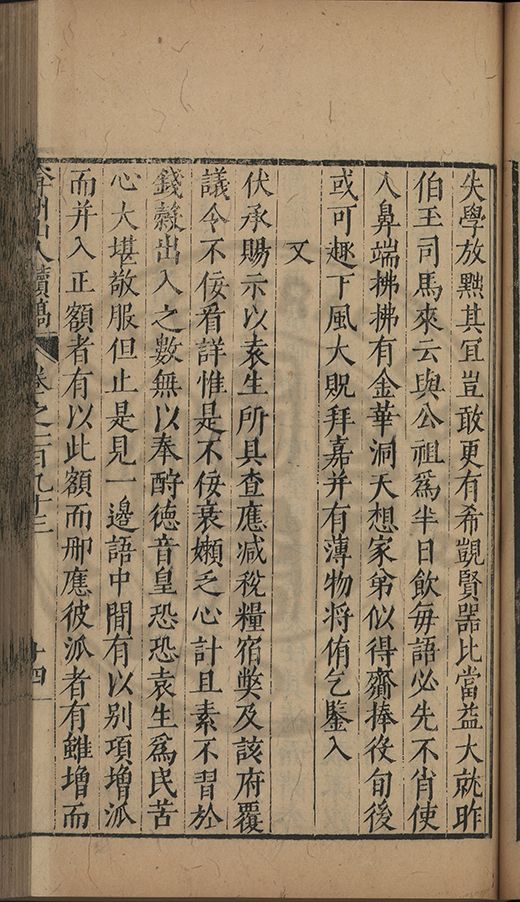 失學放黜其冝豈敢更有希覬賢噐比當益大就昨
伯王司馬來云與公祖爲半日飲每語必先不肖使
人鼻端拂拂有金華洞天想家弟似得齋捧役旬後
或可趣下風大貺拜嘉并有薄物将侑乞鑒入
又
伏承賜示以袁生所具查應减稅糧宿獘及該府覆
議令不佞看詳惟是不佞衰嬾乏心計且素不習於
錢糓出入之數無以奉酧德音皇恐恐袁生爲民苦
心大堪敬服但止是見一邉語中間有以别項增派
而并入正額者有以此額而那應彼派者有雖增而
弇州山人續稿 卷之一百九十三 十四